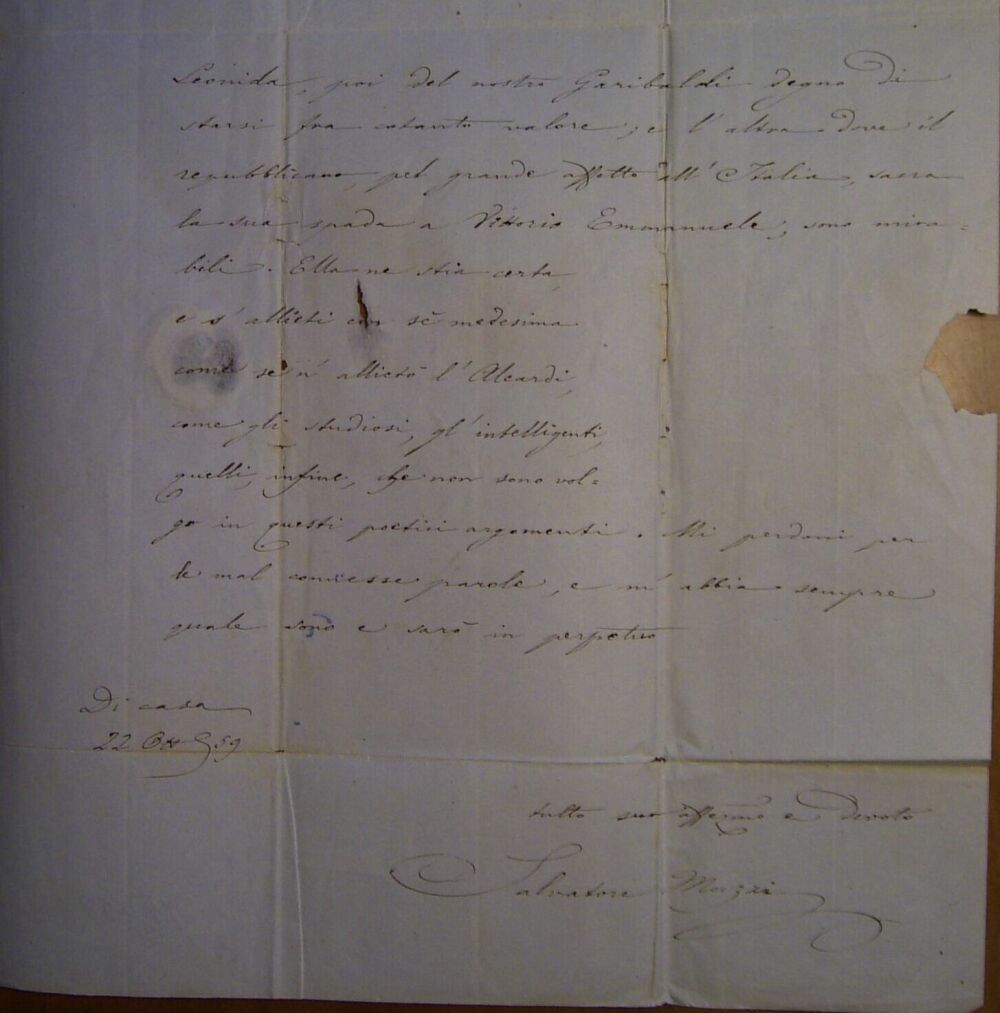 Leonida, poi del nostro Garibaldi degno di
starsi fra cotanto valore; e l'altra dove il
repubblicano, pel grande affetto all'Italia, sacra
la sua spada a Vittorio Emmanuele, sono mira=
bili. Ella ne stia certa,
e s'allieti con sè medesima
come se n'allietò l'Aleardi,
come gli studiosi, gl'intelligenti,
quelli, infine, che non sono vol=
go in questi poetici argomenti. Mi perdoni per
le mal connesse parole, e m'abbia sempre
quale sono e sarò in perpetuo
Di casa
22 Ott 59
tutto suo affezmo e devoto
Salvatore Muzzi